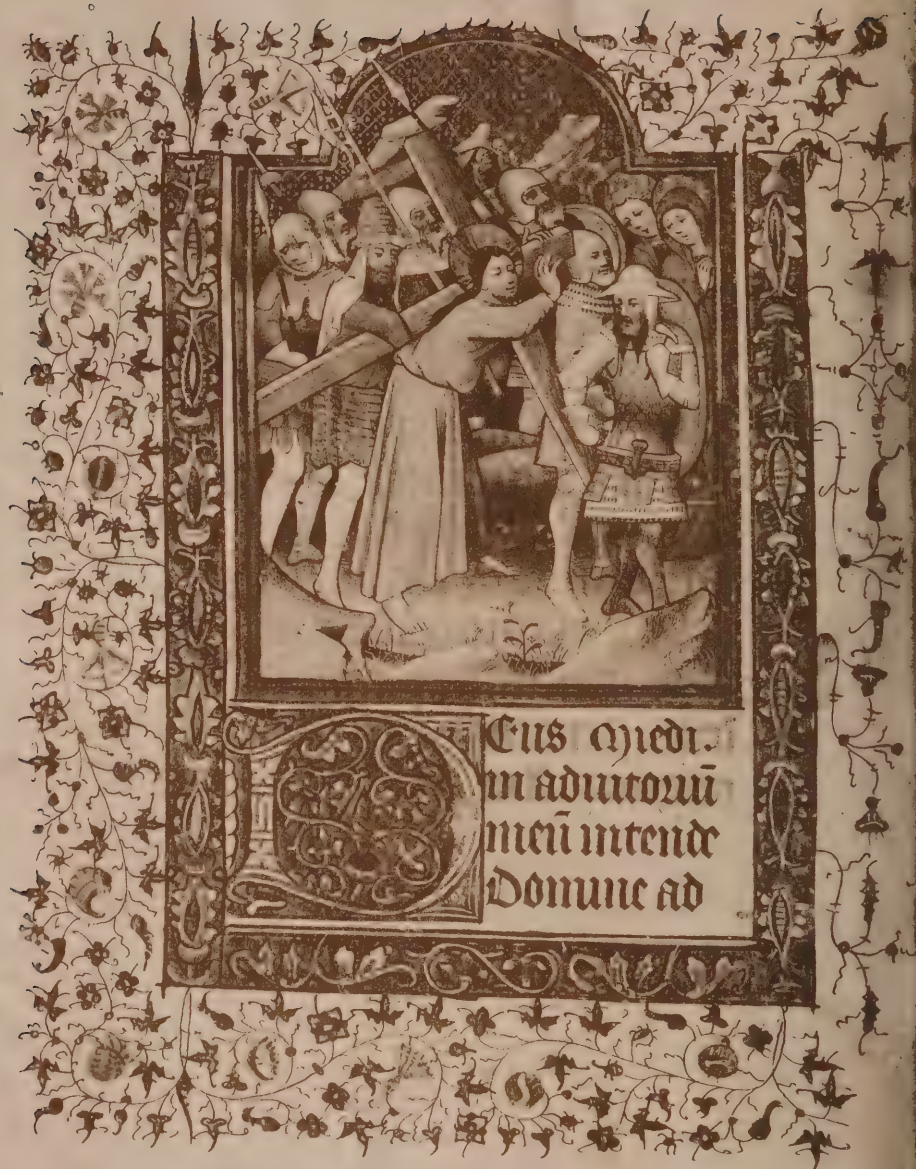 DEus Medi.
in adiutoriū
meū intende
Domine ad